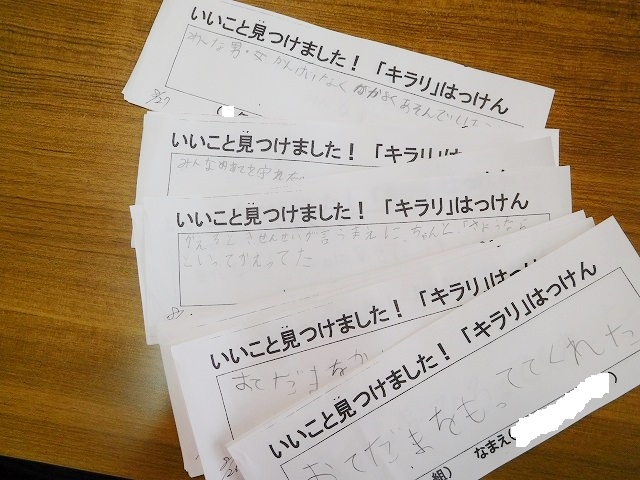 いいこと見つけました！「キラリ」はっけん
みんな男・女かんけいなくなかよくあそんでいた
9/27
いいこと見つけました！「キラリ」は
みんなめあてを守れた
いいこと見つけました！「キラリ」はっけん
かえるときせんせいが言うまえに、ちゃんと、さようなら
といってかえってた
いいこと見つけました！「キラリ」はっけん
おてだまなか
いいこと見つけました！「キラリ」はっけん
おてだまをもっててくれた
組）
なまえ（
）